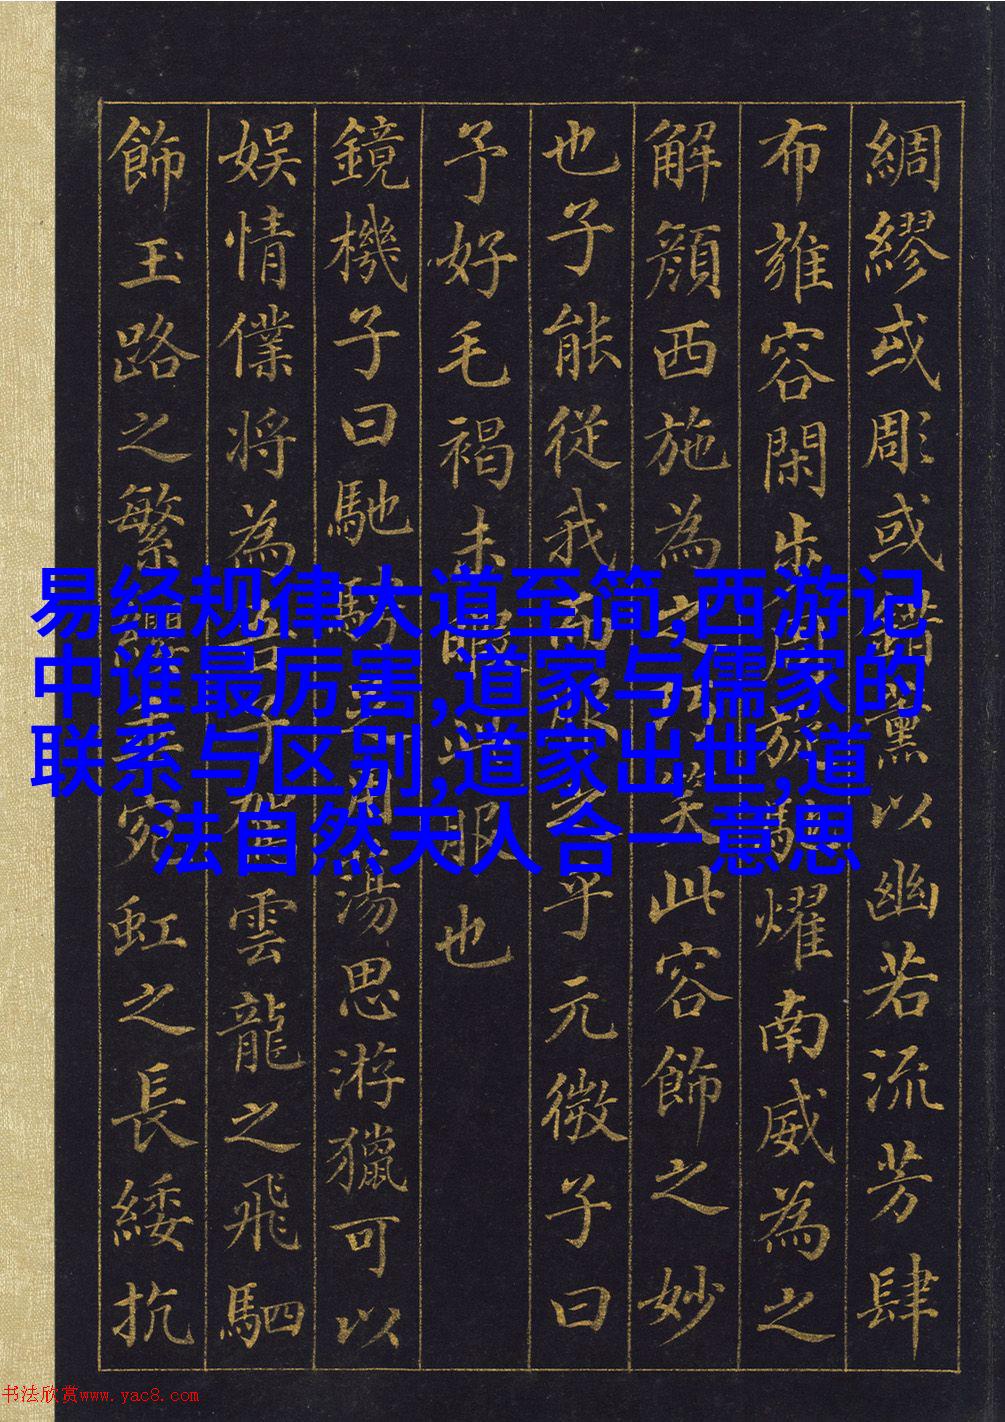 綢繆或彫或錯薰以幽若流芳肆
布雍容閑步周旋馳耀南威為之
解顏西施為之巧笑此容飾之妙
也子能從我而服之乎元微子曰
予好毛褐未暇此服也
鏡機子曰馳騁足用蕩思游獵可以
娛情僕將為吾子駕雲龍之飛駟
飾玉路之繁纓垂宛虹之長緌抗
易经规律大道至简,西游记
中谁最厉害,道家与儒家的
联系与区别,道家出世,道
法自然天人合一意思
书法欣赏www.yac8.com